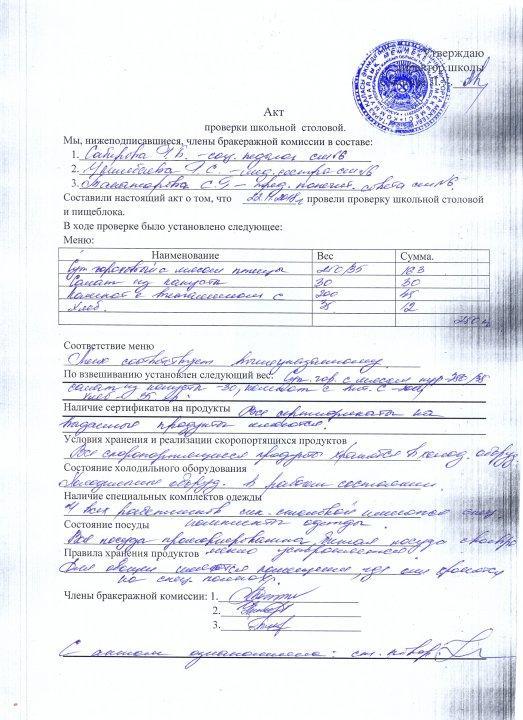 Утверждаю
директор школы
Акт
проверки школьной столовой.
Мы, нижеподписавшиеся, члены бракеражной комиссии в составе:
1. Сабирова Г.В. - соц. педагог сш №6
2. Г.С. - мед. сестра сш №6
3. С.Б. - пред. попечит. совета сш №6
Составили настоящий акт о том, что провели проверку школьной столовой
и пищеблока.
В ходе проверке было установлено следующее:
Меню:
Наименование Вес Сумма.
Суп гороховый с мясом птицы 250/35 163
Салат из капусты 30 30
Компот с витамином С 200 45
Хлеб 35 12
250
Соответствие меню
Меню соответствует вышеуказанному.
По взвешиванию установлен следующий вес: Суп гор. с мясом кур -250/35
салат из капусты -30, компот с вит. С -200
хлеб - 35 гр.
Наличие сертификатов на продукты Все сертификаты на
продукты имеются.
Условия хранения и реализации скоропортящихся продуктов
Все скоропортящиеся продукты хранятся в холод. оборуд.
Состояние холодильного оборудования
Холодильное оборуд. в рабочем состоянии.
Наличие специальных комплектов одежды
У всех работников шк. столовой имеются спец.
комплекты одежды.
Состояние посуды
Вся посуда промаркирована,
Правила хранения продуктов
Для овощей имеются помещения, где они хранятся
на спец. полках.
Члены бракеражной комиссии: 1.
2.
3.
С актом ознакомлена: ст. повар